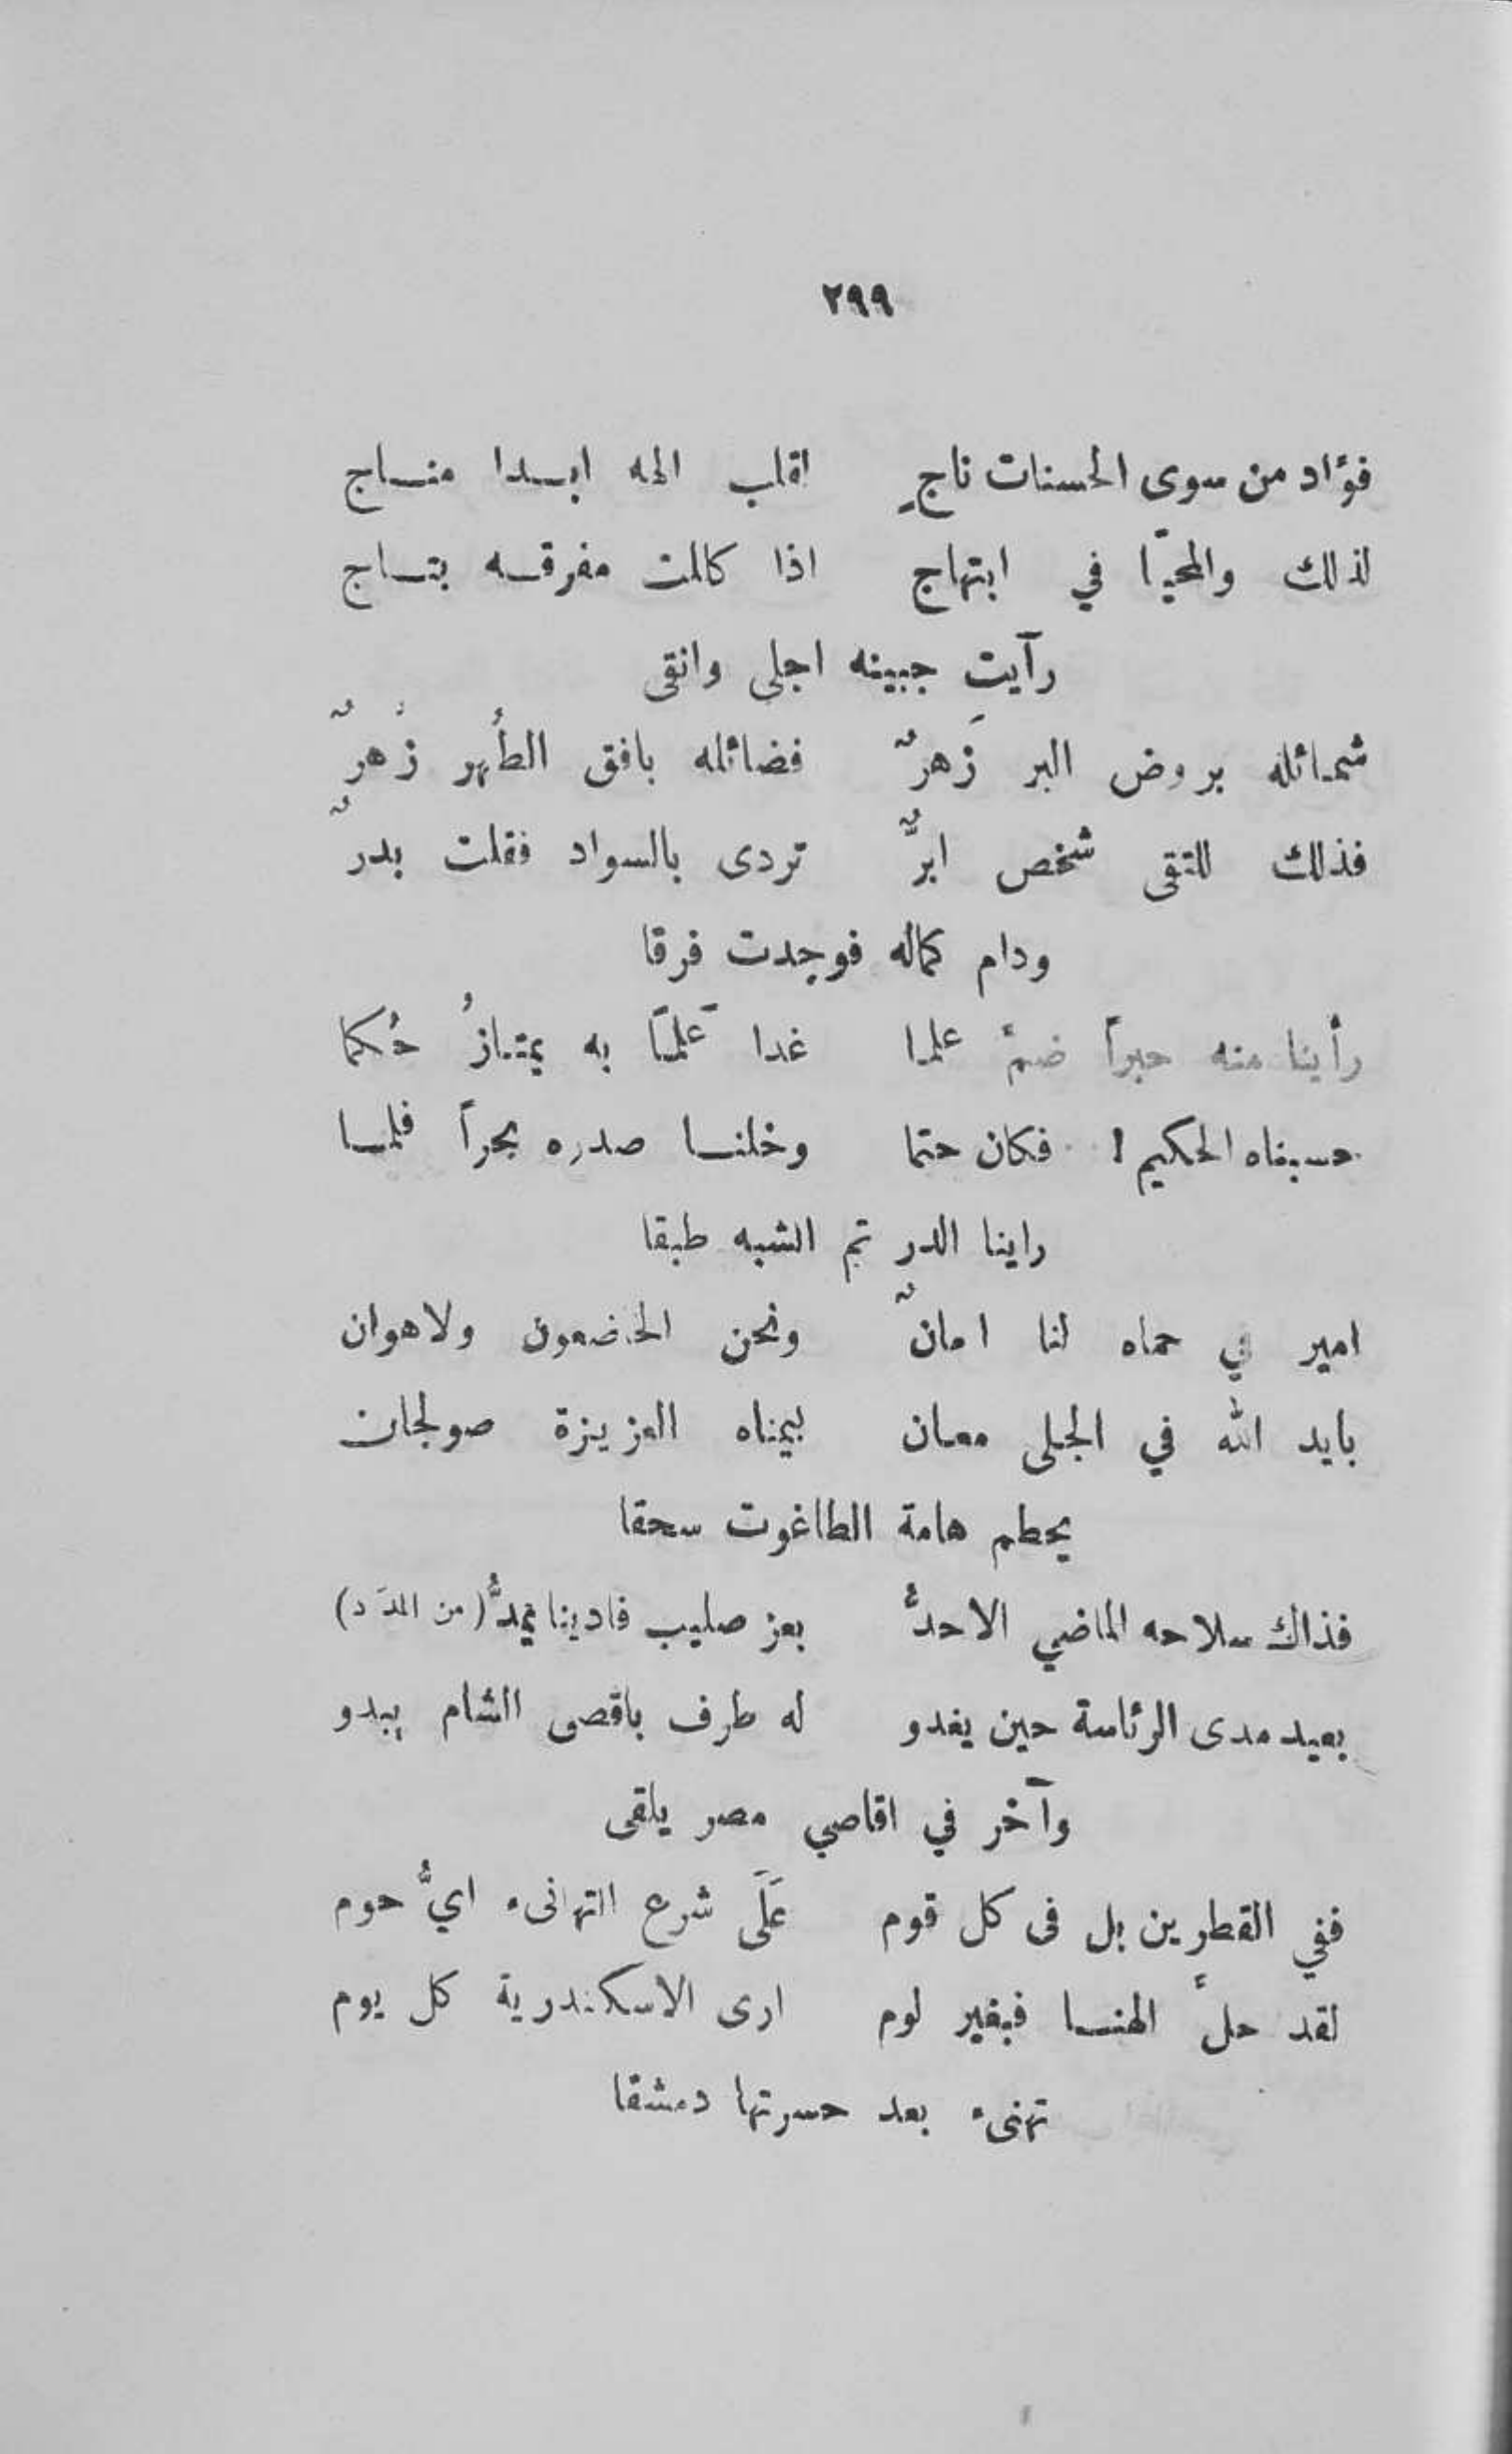 ٢٩٩
فؤاد من سوى الحسنات ناجٍ اقلب اله ابدا مناج
لذلك والمحيّا في ابتهاج اذا كالت مفرقه بتاج
رآيت جبينه اجلى وانقى
شمائله بروض البر زَهرٌ فضائله بافق الطُهر زُهرٌ
فذلك للتقى شخص ابرٌّ تردى بالسواد فقلت بدرٌ
ودام كماله فوجدت فرقا
رأينا منه حبراً ضمَّ علما غدا عَلمًا به يمتازُ حُكما
حسبناه الحكيم ! فكان حتما وخلنا صدره بحراً فلما
راينا الدر تم الشبه طبقا
امير في حماه لنا امانٌ ونحن الخاضعون ولاهوان
بايد الله في الجلى معان بيمناه العزيزة صولجان
يحطم هامة الطاغوت سحقا
فذاك سلاحه الماضي الاحدُّ بعز صليب فادينا يمدُّ (من المدَد)
بعيد مدى الرئاسة حين يغدو له طرف باقصى الشام يبدو
وآخر في اقاصي مصر يلقى
ففي القطرين بل فى كل قوم عَلَى شرع التهانىء ايُّ حوم
لقد حلَّ الهنا فبغير لوم ارى الاسكندرية كل يوم
تهنىء بعد حسرتها دمشقا